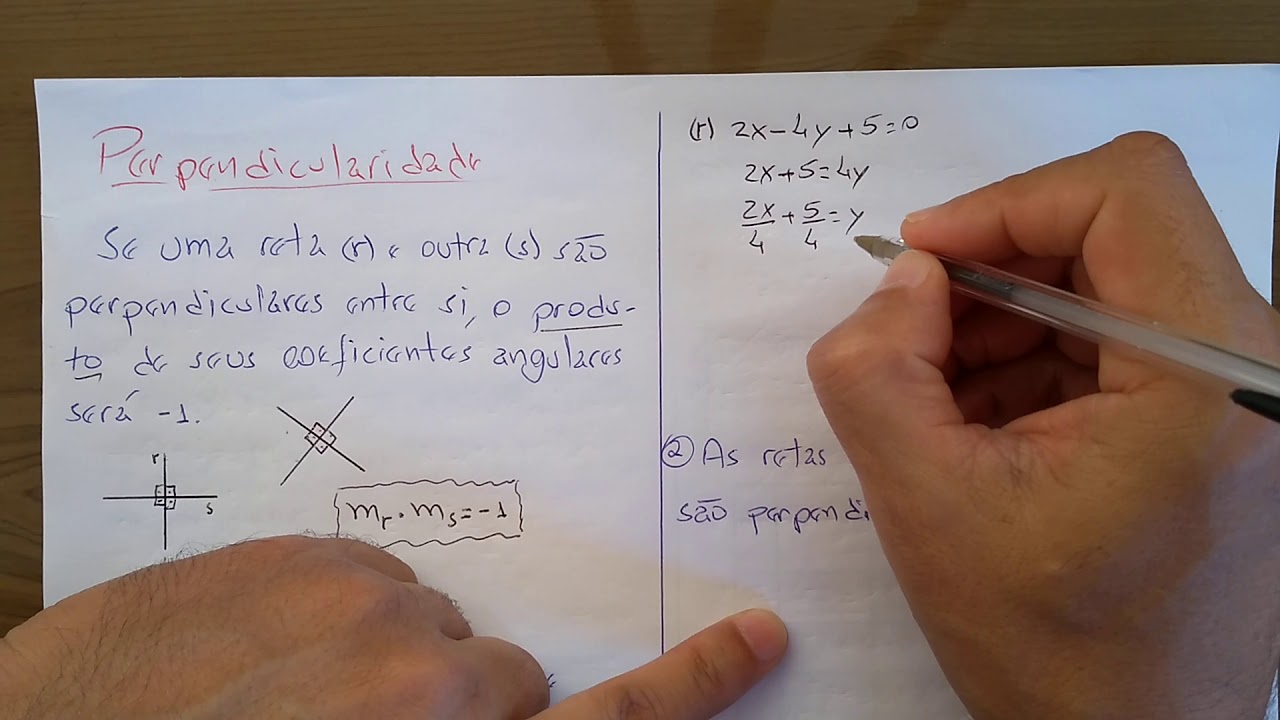 Perpendicularidade
Se uma reta (r) e outra (s) são
perpendiculares entre si, o produ-
to de seus coeficientes angulares
será -1.
r
s
mr . ms = -1
(r) 2x - 4y + 5 = 0
2x + 5 = 4y
2x/4 + 5/4 = y
② As retas
são perpendi